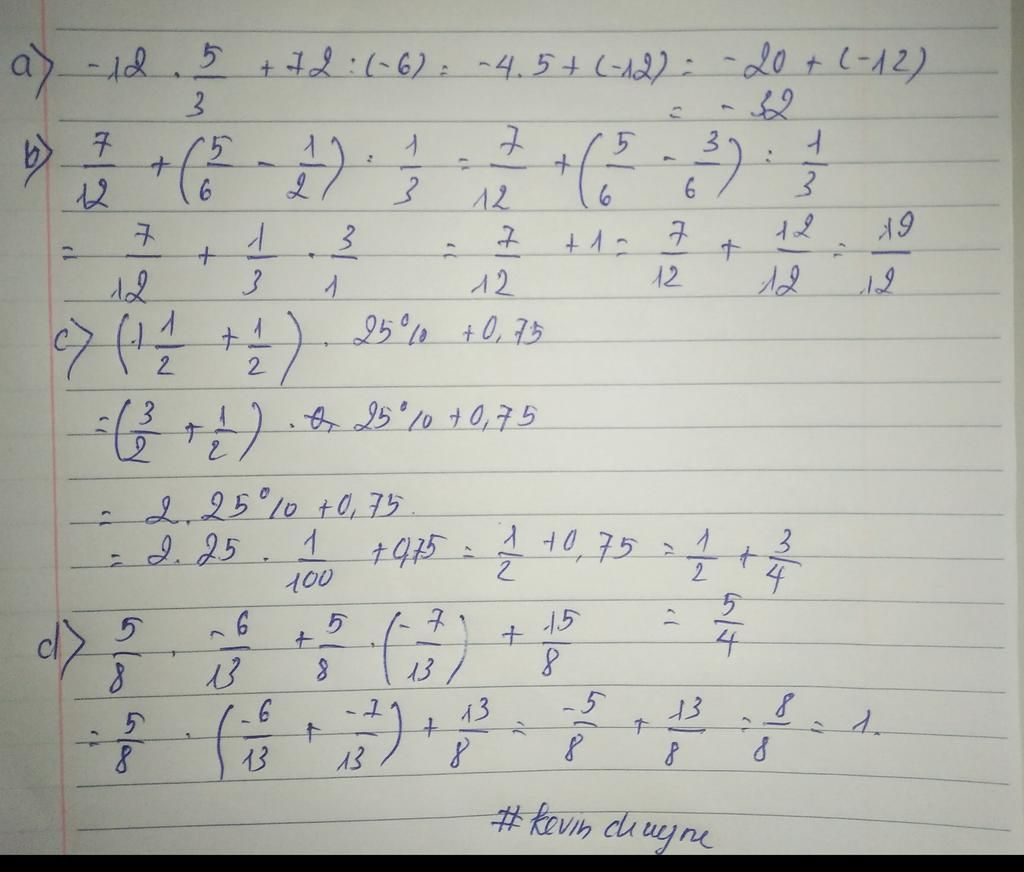 a) -12 . 5/3 + 72 : (-6) = -4.5 + (-12) = -20 + (-12)
= -32
b) 7/12 + (5/6 - 1/2) : 1/3 = 7/12 + (5/6 - 3/6) : 1/3
= 7/12 + 1/3 . 3/1 = 7/12 + 1 = 7/12 + 12/12 = 19/12
c) (1 1/2 + 1/2) . 25% + 0,75
= (3/2 + 1/2) . 25% + 0,75
= 2.25% + 0,75.
= 2.25 . 1/100 + 0,75 = 1/2 + 0,75 = 1/2 + 3/4
= 5/4
d) 5/8 . -6/13 + 5/8 . (-7/13) + 15/8
= 5/8 . (-6/13 + -7/13) + 13/8 = -5/8 + 13/8 = 8/8 = 1.
#kevin